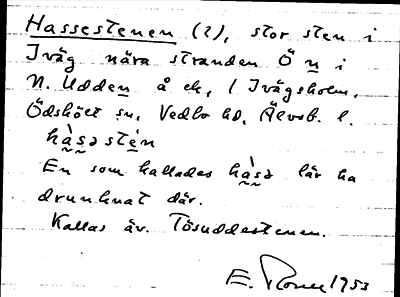 Hassestenen (?), stor sten i
Iväg nära stranden Ö n i
N. Udden å ek, l Ivägsholm,
Ödskölt sn, Vedbo hd, Älvsb. l.
hàsə stén
En som kallades hàsə lär ha
drunknat där.
Kallas äv. Tösuddestenen.
E. 1953